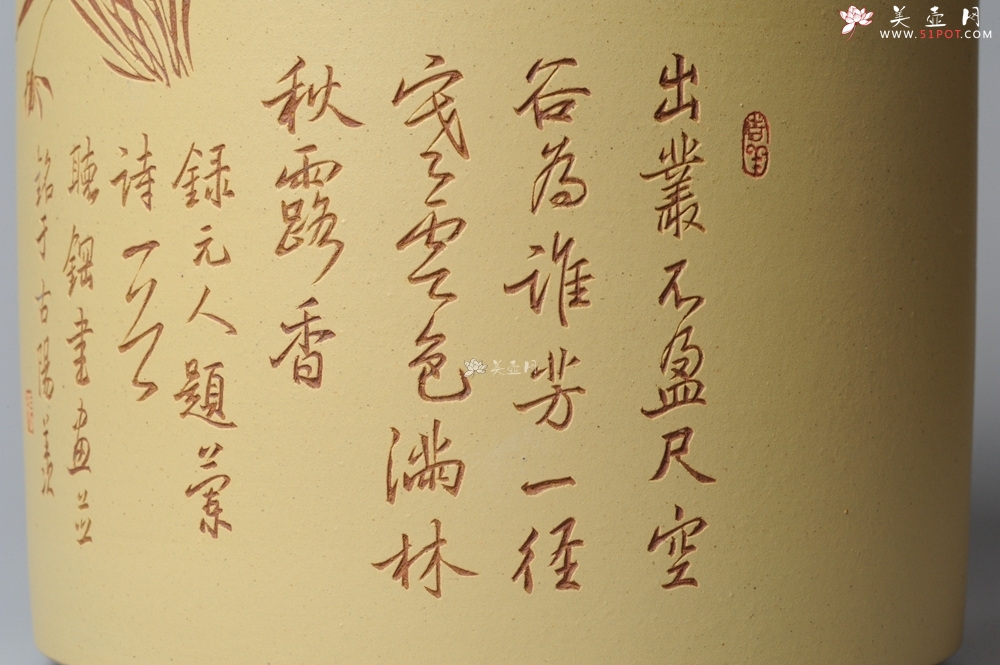 美壶网
WWW.51POT.COM
吉羊
出叢不盈尺空
谷為誰芳一径
寒雲色滿林
秋露香
録元人題蘭
詩一首
聽鋼書畫並
銘于古陽羨
美壶网